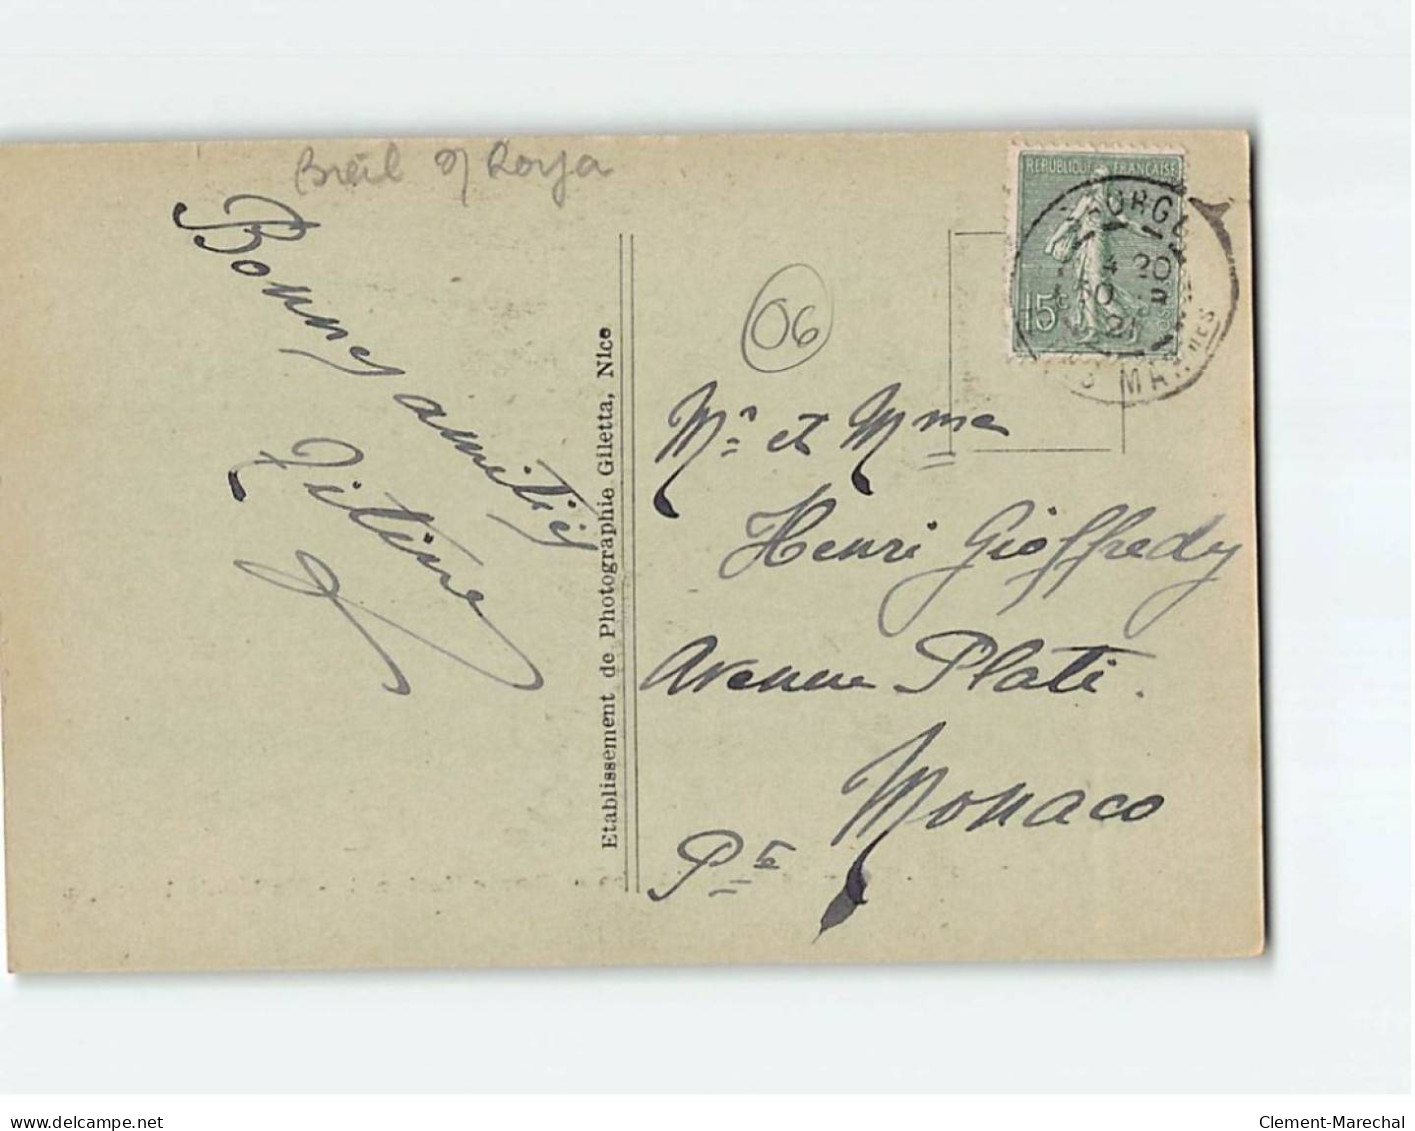 Breil s/ Roya
Bonnes amitiés
Titine
06
Etablissement de Photographie Giletta, Nice
REPUBLIQUE FRANÇAISE
15c
20
10
21
Mr et Mme
Henri Gioffredy
Avenue Plati.
Monaco
Pté
delcampe.net
Clement-Marechal